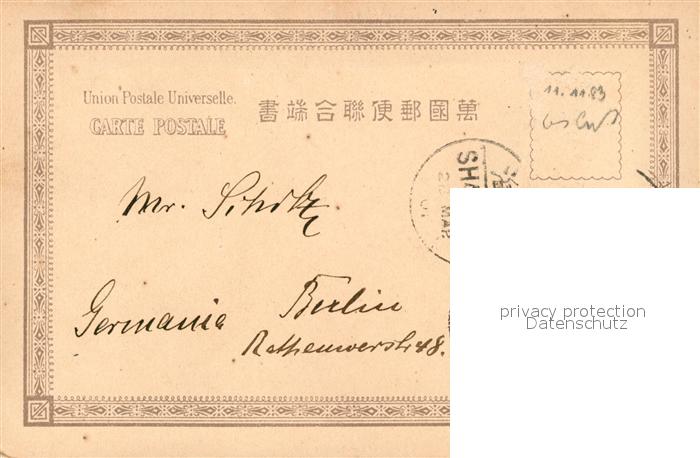 Union Postale Universelle.
CARTE POSTALE
書端合聯便郵國萬
11.11.83
SHA
MAR
Mr. Scholtz
Germania Berlin
Rathenowerstr 48.
privacy protection
Datenschutz